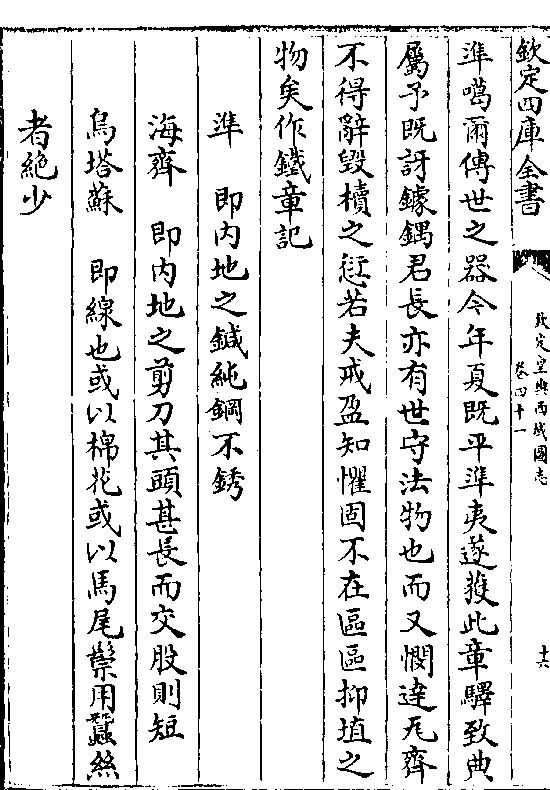 欽定四庫全書
欽定皇輿西域圖志
卷四十一
十六
準噶爾傳世之器今年夏既平準夷遂獲此章驛致典
屬予既訝鐻鍝君長亦有世守法物也而又憫達瓦齊
不得辭毀櫝之愆若夫戒盈知懼固不在區區抑埴之
物矣作鐵章記
準　即內地之鍼純鋼不銹
海齊　即內地之剪刀其頭甚長而交股則短
烏塔蘇　即線也或以棉花或以馬尾鬃用蠶絲
者絶少